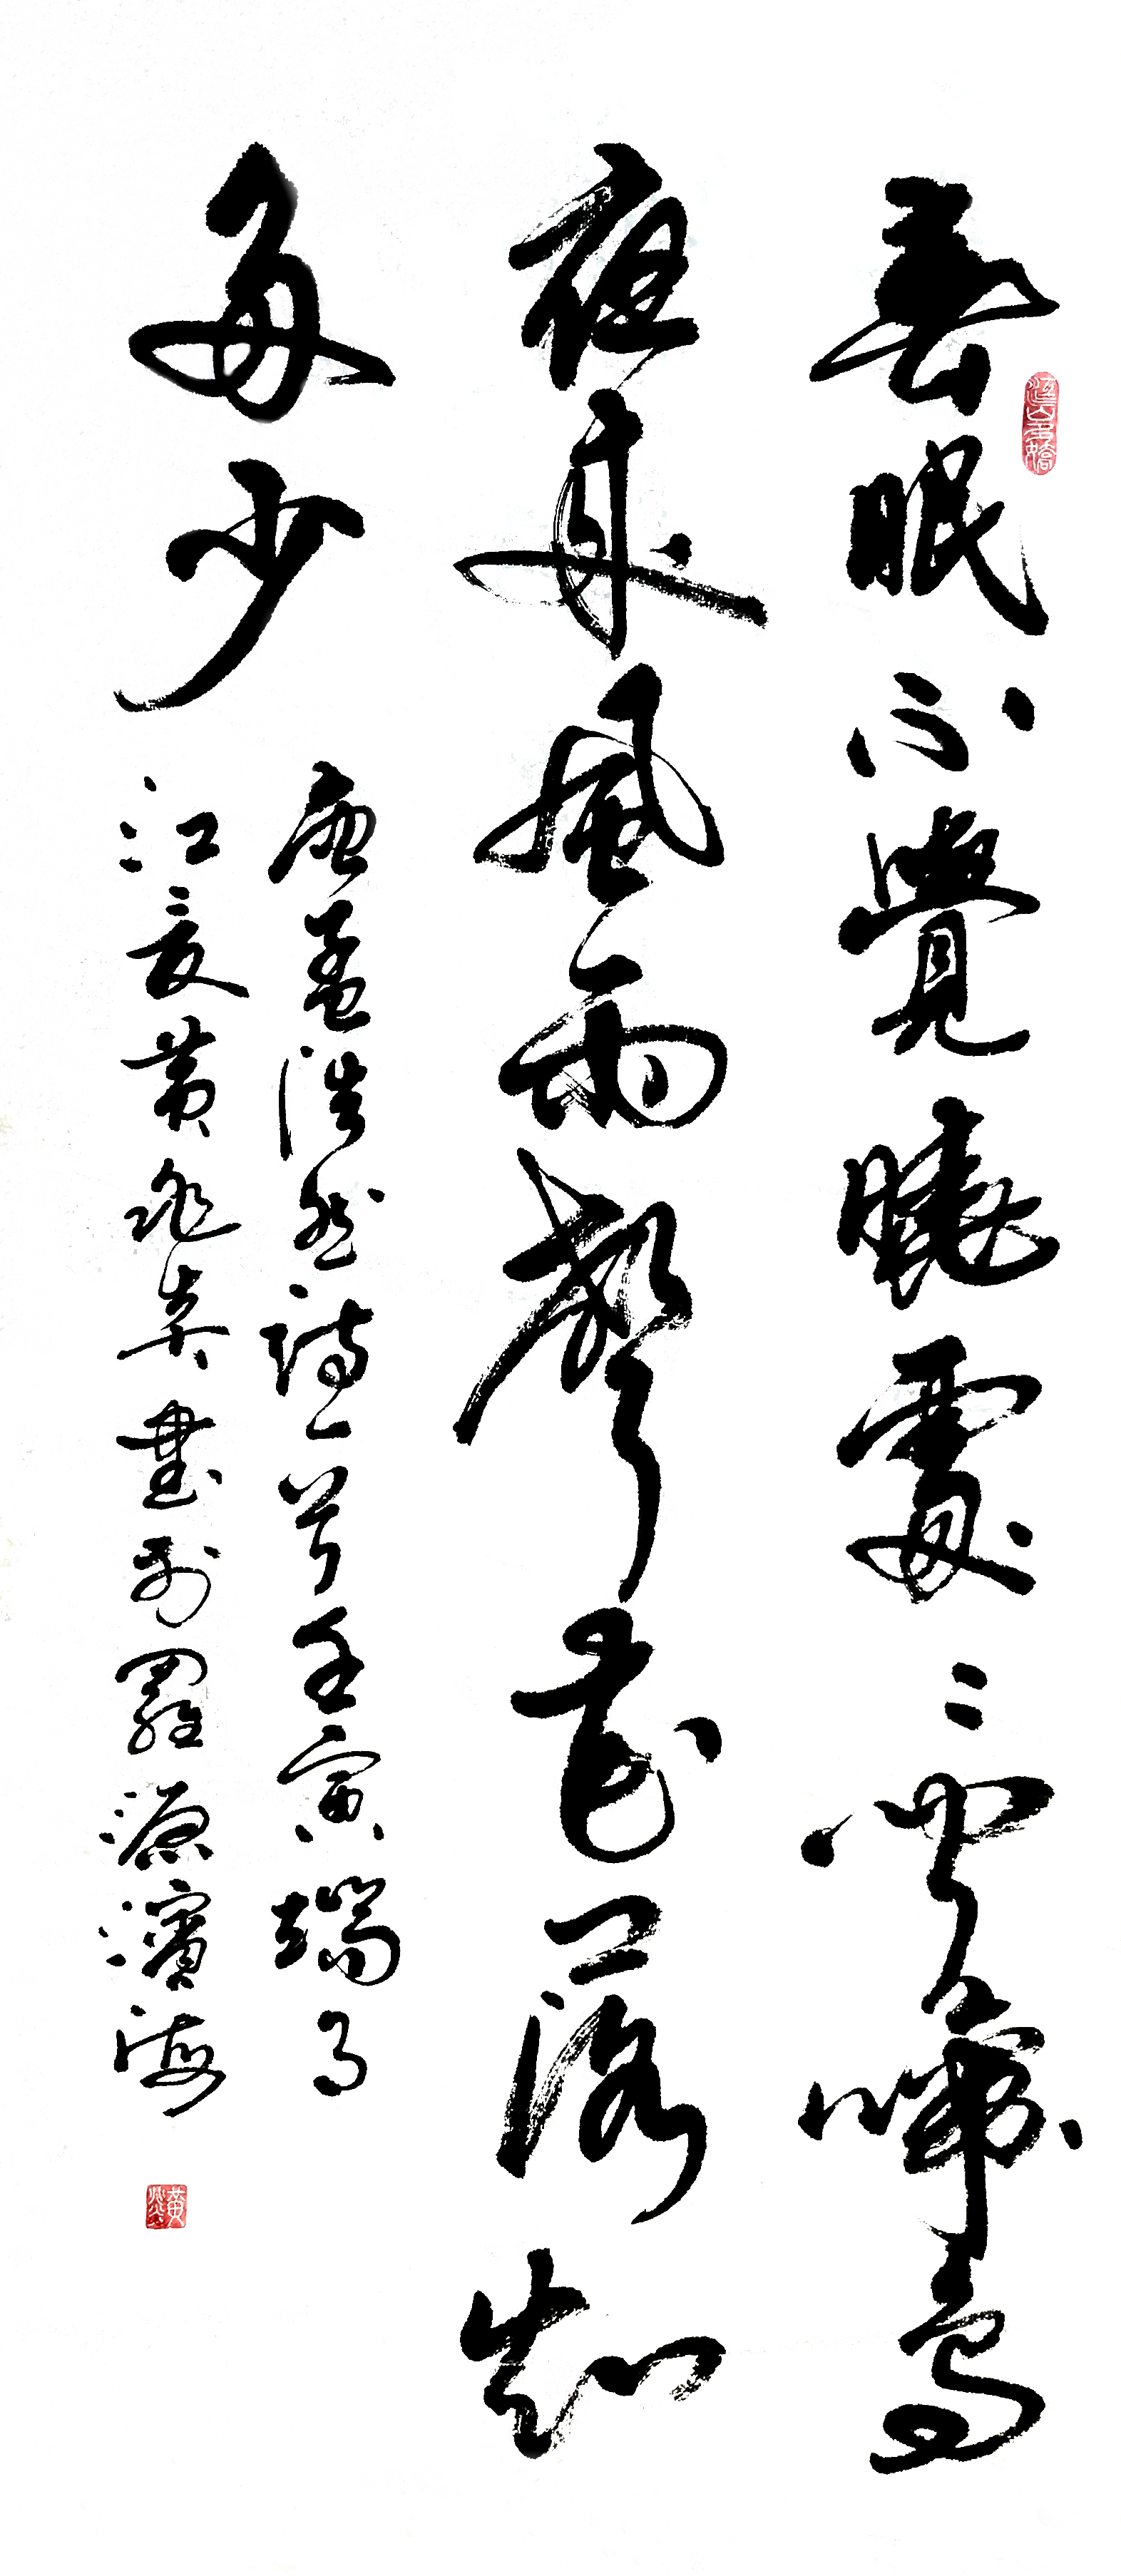 春眠不覺曉處〻聞啼鳥
夜来風雨聲花落知
多少
唐孟浩然詩一首壬寅端月
江夏黄兆書於羅源濱海
江山多嬌